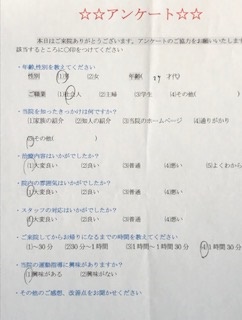 ☆☆アンケート☆☆
本日はご来院ありがとうございます。アンケートのご協力をお願いいたします
該当するところに○印をつけてください
・年齢,性別を教えてください
性別 (1)男 (2)女 年齢( 27 才代)
ご職業 (1)会社人 (2)主婦 (3)学生 (4)その他(
・当院を知ったきっかけは何ですか?
(1)家族の紹介 (2)知人の紹介 (3)当院のホームページ (4)通りがかり
(5)その他( )
・治療内容はいかがでしたか?
(1)大変良い (2)良い (3)普通 (4)悪い (5)よくわから
・院内の雰囲気はいかがでしたか?
(1)大変良い (2)良い (3)普通 (4)悪い
・スタッフの対応はいかがでしたか?
(1)大変良い (2)良い (3)普通 (4)悪い
・ご来院してからお帰りになるまでの時間を教えてください
(1)~30分 (2)30分~1時間 (3)1時間~1時間30分 (4)1時間30分
・当院の運動指導に興味がありますか?
(1)興味がある (2)興味がない
・その他のご感想、改善点をお聞かせください